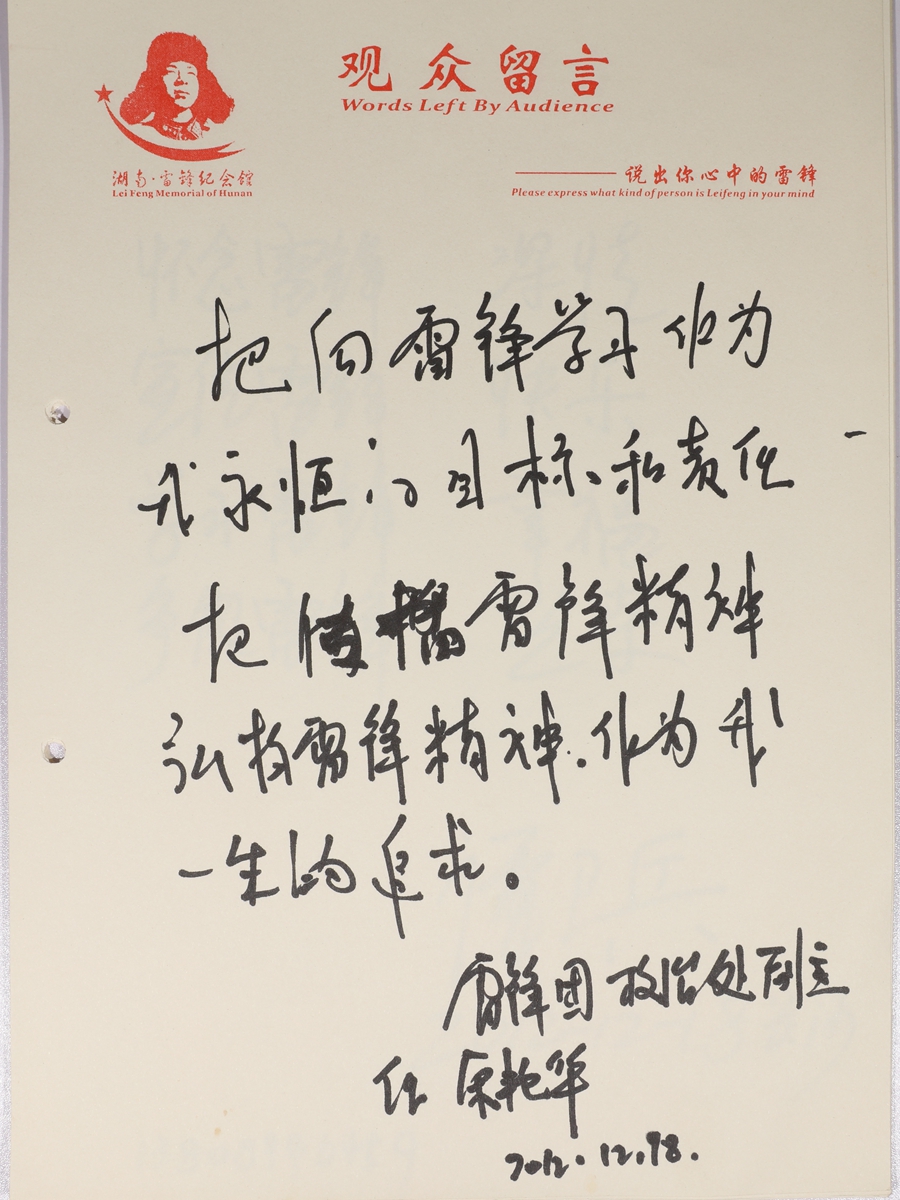 观众留言
Words Left By Audience
湖南·雷锋纪念馆
Lei Feng Memorial of Hunan
说出你心中的雷锋
Please express what kind of person is Leifeng in your mind
把向雷锋学习作为
我永恒的目标、和责任
把传播雷锋精神
弘扬雷锋精神.作为我
一生的追求。
雷锋团政治处副主
任 艳华
2012.12.18.